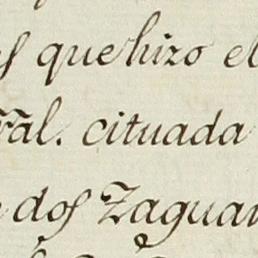 que hizo el
ral. cituada
dos Zaguan